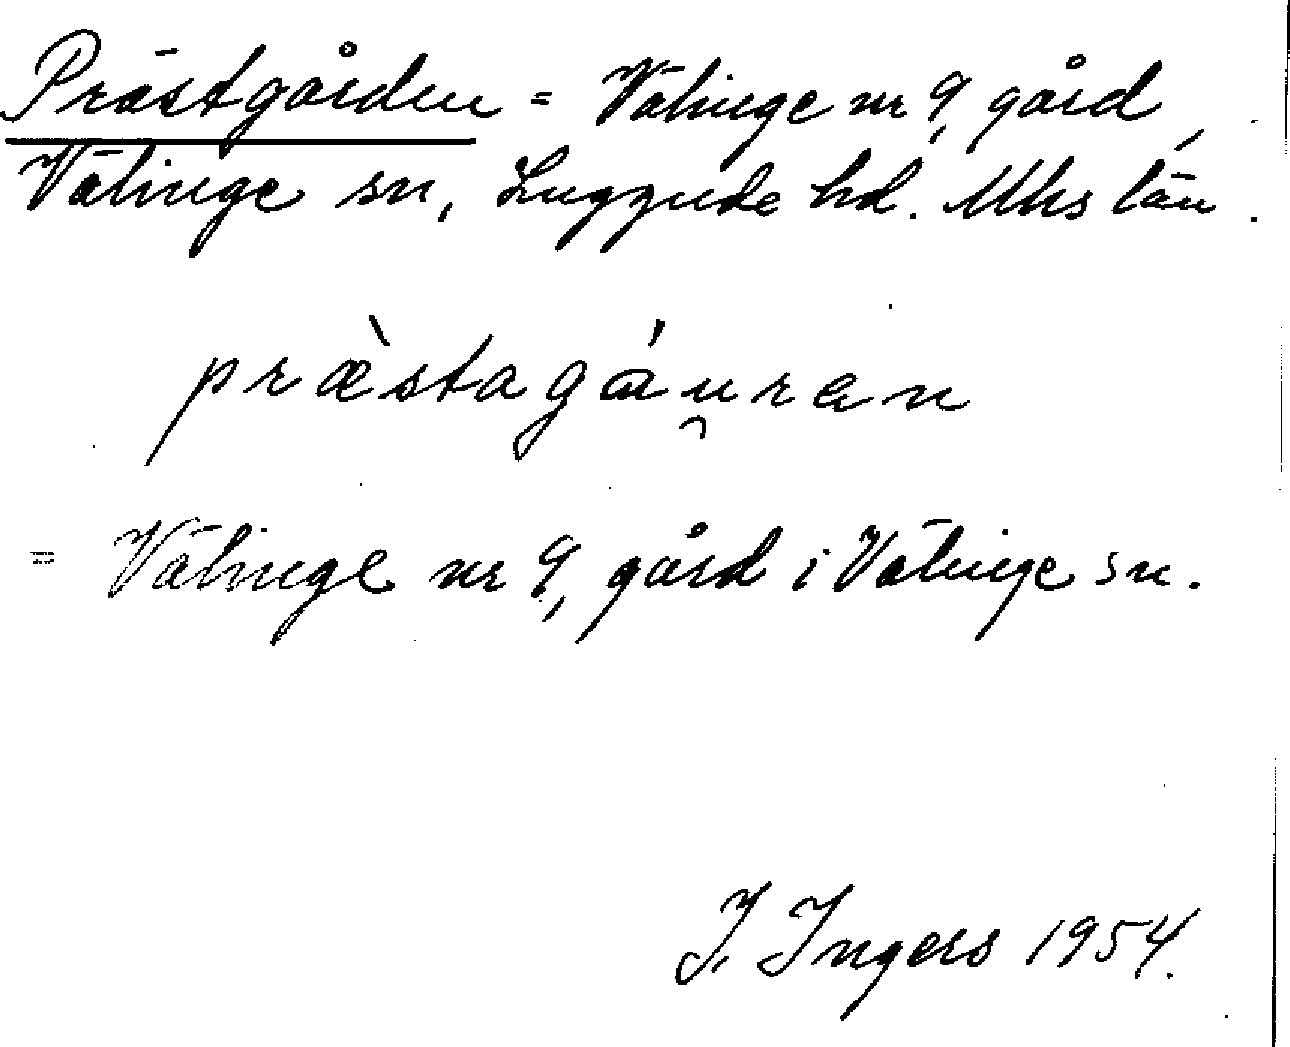 Prästgården = Välinge nr 9, gård,
Välinge sn, Luggude hd. Mhs län.
præ̀stagáu̯ran
= Välinge nr 9, gård i Välinge sn.
I. Ingers 1954.